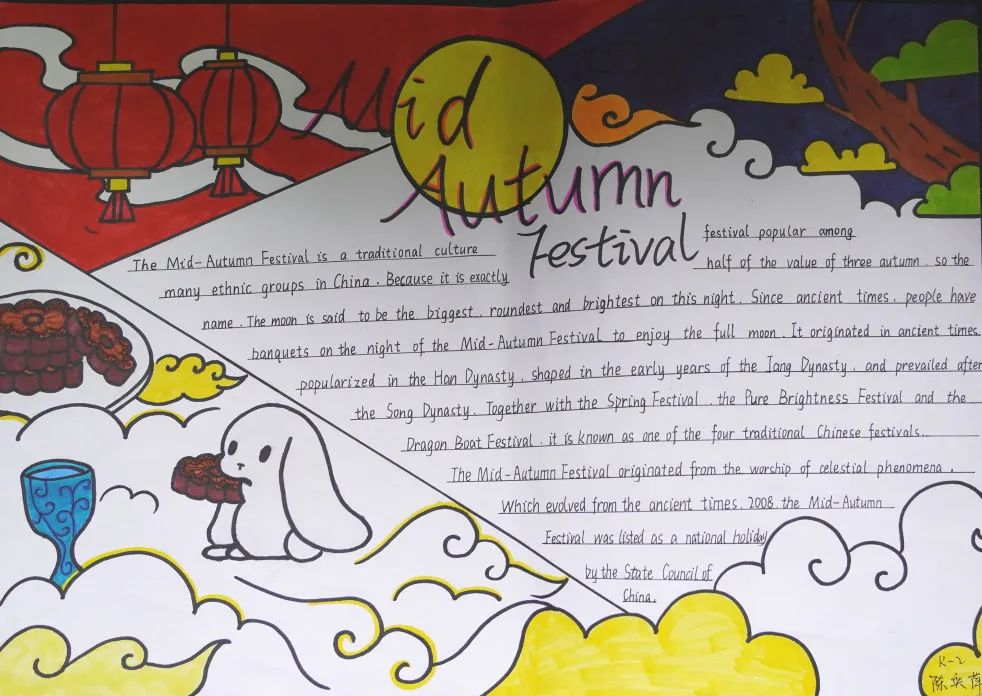 Mid
Autumn
Festival
The Mid-Autumn Festival is a traditional culture festival popular among
many ethnic groups in China. Because it is exactly half of the value of three autumn, so the
name. The moon is said to be the biggest, roundest and brightest on this night. Since ancient times, people have
banquets on the night of the Mid-Autumn Festival to enjoy the full moon. It originated in ancient times,
popularized in the Han Dynasty, shaped in the early years of the Tang Dynasty, and prevailed after
the Song Dynasty. Together with the Spring Festival, the Pure Brightness Festival and the
Dragon Boat Festival, it is known as one of the four traditional Chinese festivals.
The Mid-Autumn Festival originated from the worship of celestial phenomena,
Which evolved from the ancient times. 2008, the Mid-Autumn
Festival was listed as a national holiday
by the State Council of
China.
K-2